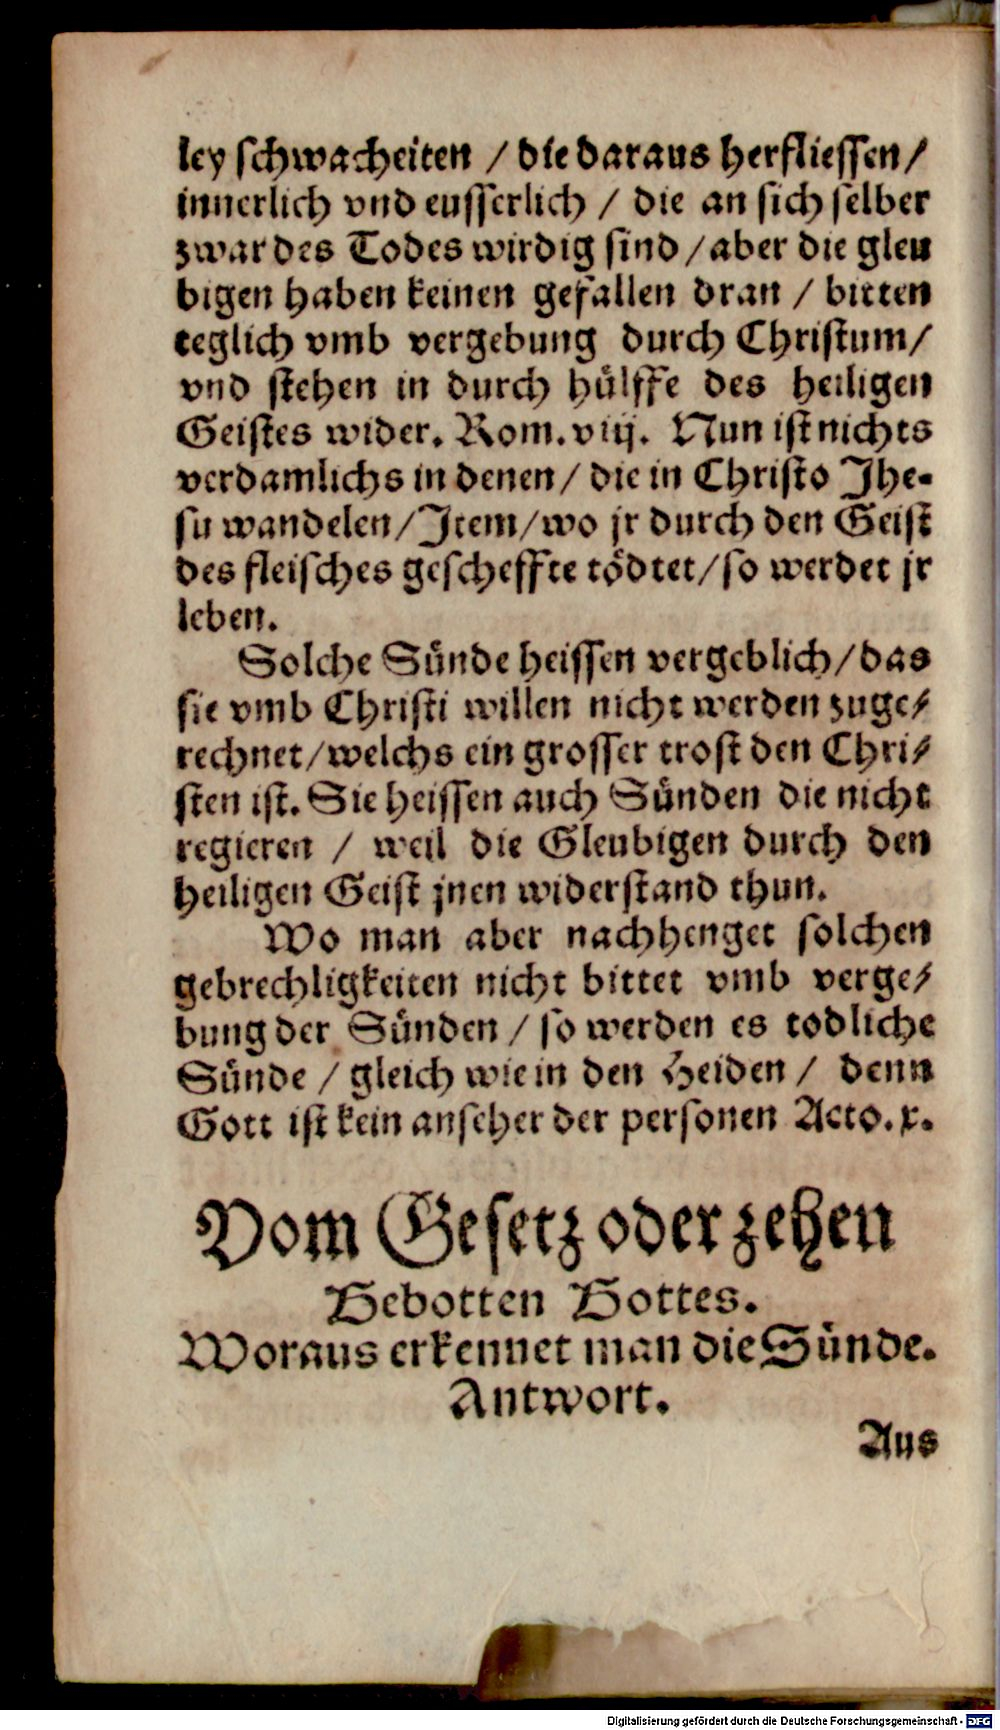 ley schwacheiten / die daraus herfliessen /
innerlich vnd eusserlich / die an sich selber
zwar des Todes wirdig sind / aber die gleu
bigen haben keinen gefallen dran / bitten
teglich vmb vergebung durch Christum /
vnd stehen in durch hülffe des heiligen
Geistes wider. Rom. viij. Nun ist nichts
verdamlichs in denen / die in Christo Jhe-
su wandelen / Jtem / wo jr durch den Geist
des fleisches gescheffte tödtet / so werdet jr
leben.
Solche Sünde heissen vergeblich / das
sie vmb Christi willen nicht werden zuge-
rechnet / welchs ein grosser trost den Chri-
sten ist. Sie heissen auch Sünden die nicht
regieren / weil die Gleubigen durch den
heiligen Geist jnen widerstand thun.
Wo man aber nachhenget solchen
gebrechligkeiten nicht bittet vmb verge-
bung der Sünden / so werden es todliche
Sünde / gleich wie in den Heiden / denn
Gott ist kein anseher der personen Acto. x.
Vom Gesetz oder zehen
Gebotten Gottes.
Woraus erkennet man die Sünde.
Antwort.
Aus
Digitalisierung gefördert durch die Deutsche Forschungsgemeinschaft - DFG